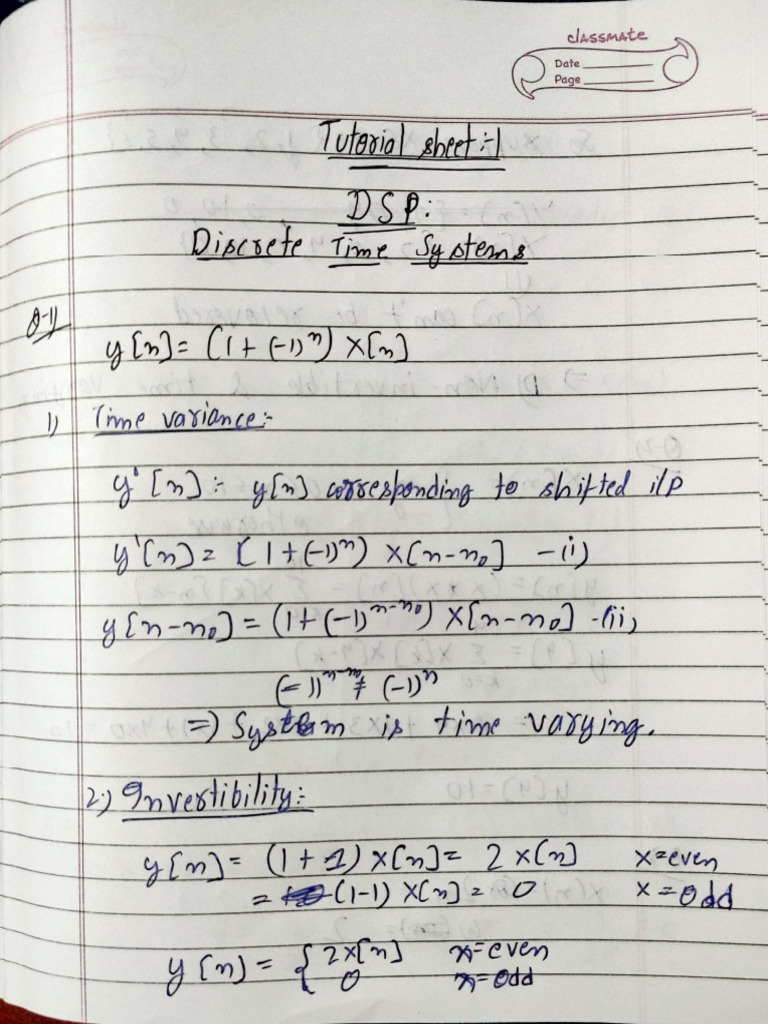 classmate
Date
Page
Tutorial sheet:-1
DSP:
Discrete Time Systems
Q-1)
y[n] = (1 + (-1)^n) x[n]
1) Time variance:-
y'[n] :- y[n] corresponding to shifted i/p
y'[n] = [1 + (-1)^n) x[n-n₀] -(i)
y[n-n₀] = (1 + (-1)^{n-n₀}) x[n-n₀] -(ii)
(-1)^{n-n₀} ≠ (-1)^n
=) System is time varying.
2.) Invertibility:-
y[n] = (1 + 1) x[n] = 2 x[n] x=even
= (1-1) x[n] = 0 x=odd
y[n] = { 2x[n] n=even
0 n=odd